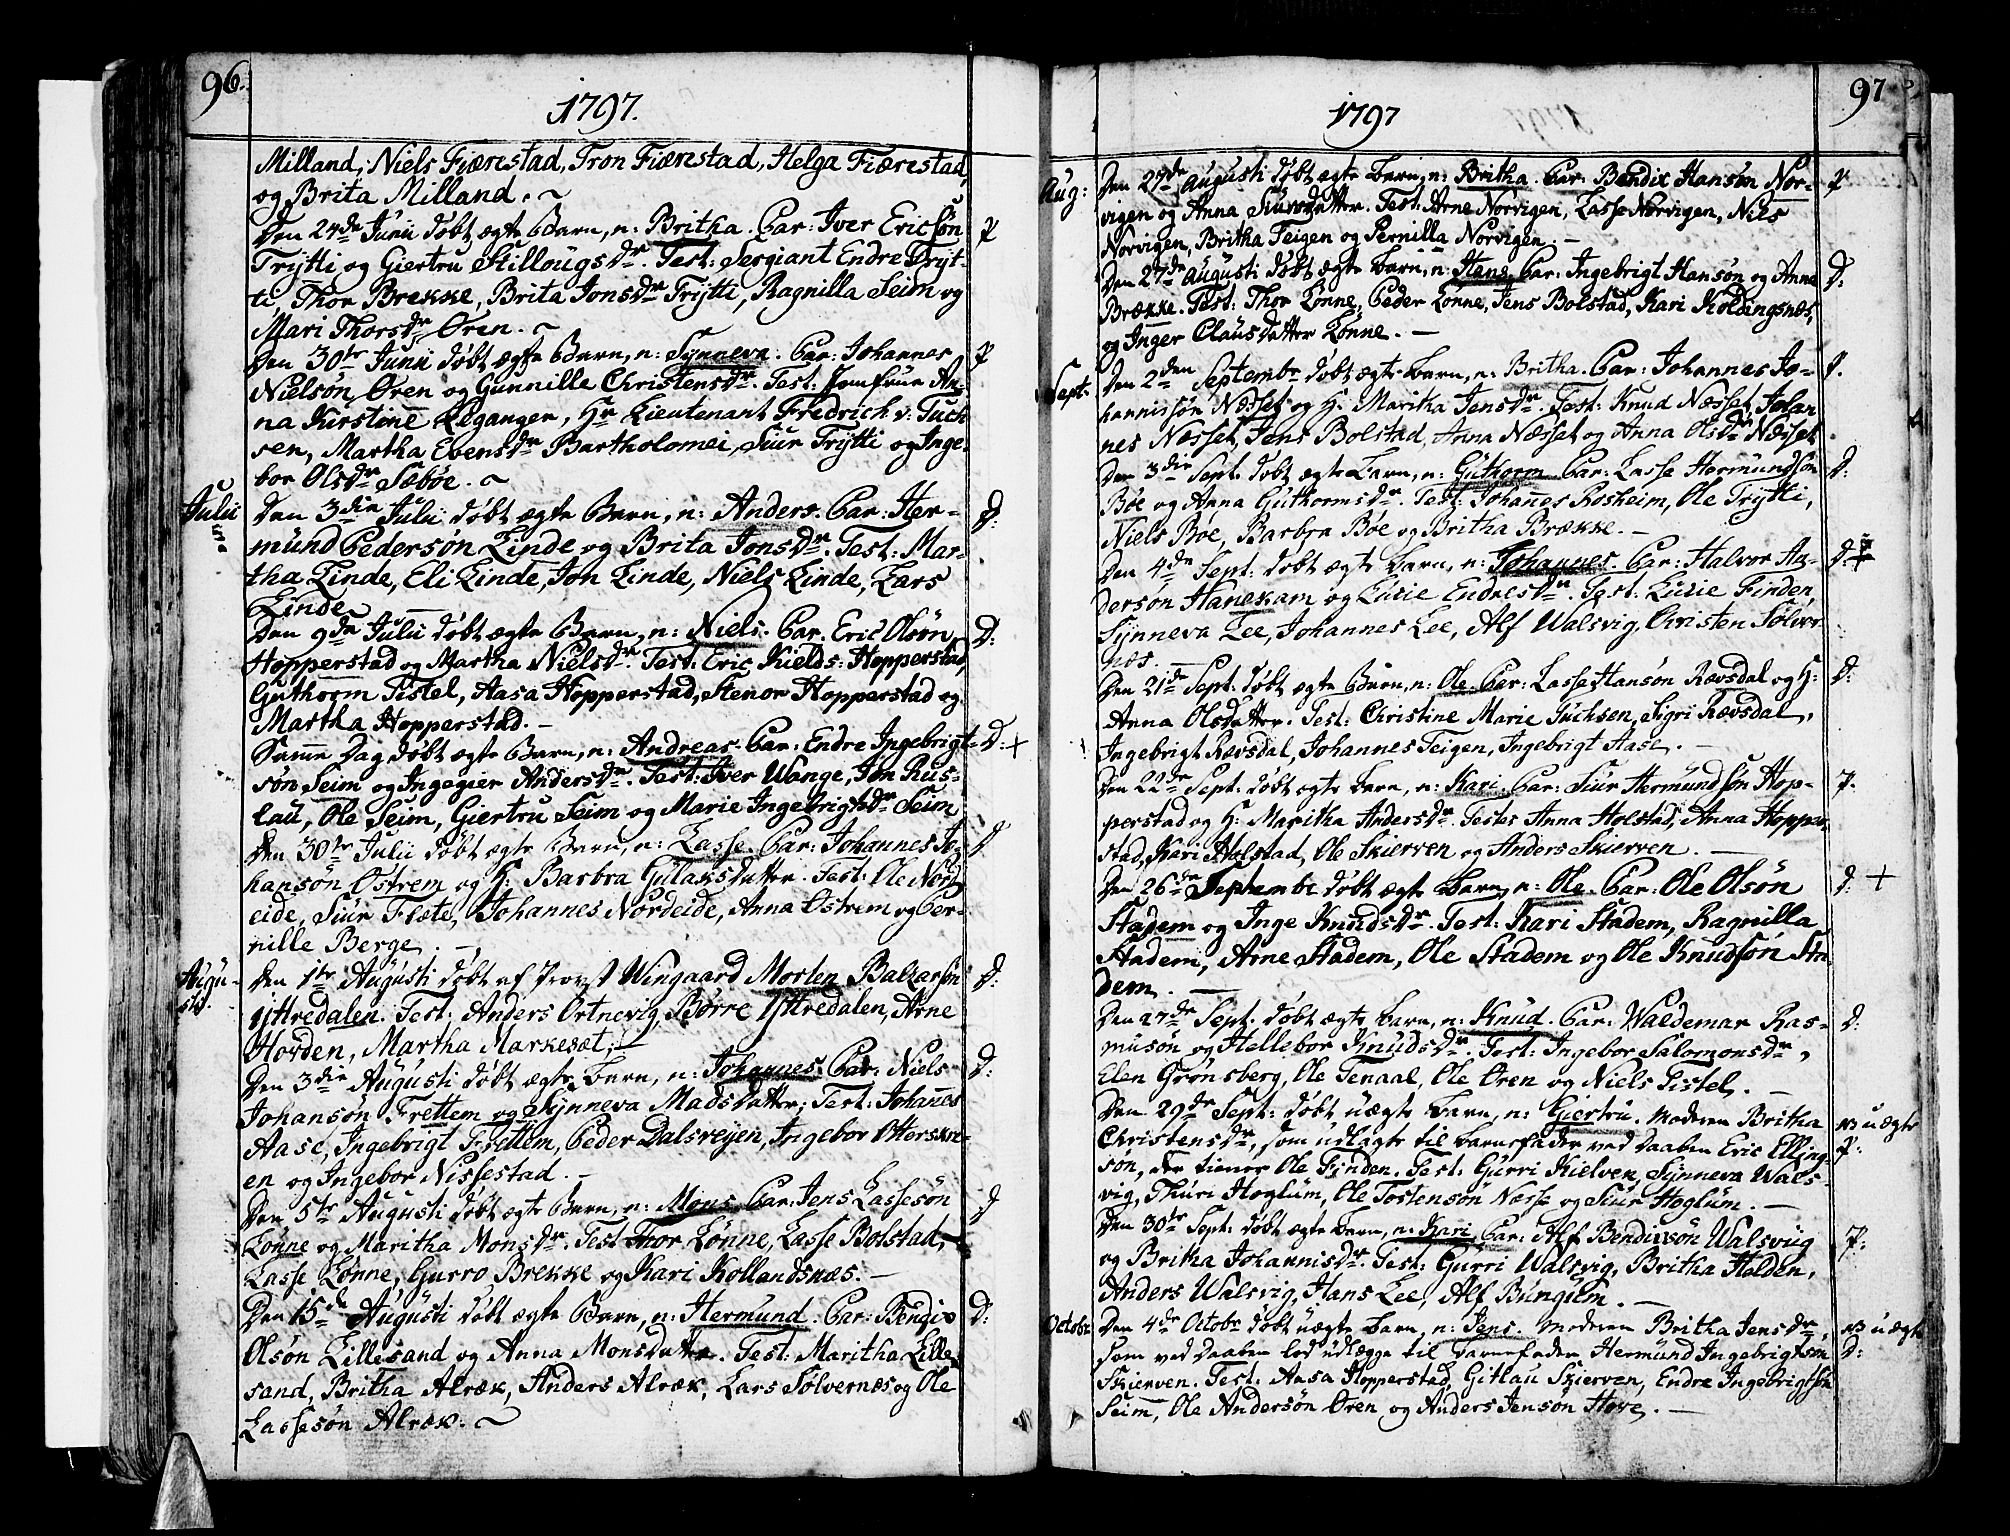 96.
1797.
Milland, Niels Fiærestad, Tron Fiærestad, Helga Fiærestad,
og Brita Milland. ~
Den 24de Junii døbt ægte Barn, n: Britha. Par: Iver Ericsøn P
Trÿtti og Giertru Stillougsdr. Test: Sergiant Endre Trÿt-
ti, Thor Brekke, Brita Jonsdr Trÿtti, Ragnilla Seim og
Mari Thorsdr Øren. ~
Den 30te Junii døbt ægte Barn, n: Sÿnneva. Par: Johannes P
Nielsøn Øren og Gunnille Christensdr. Test: Jomfrue An-
na Kirstine Leganger, Hr Lieutenant Fredrich v: Tuch
sen, Martha Evensdr Bartholomei, Siur Trÿtti og Inge-
bor Olsdr Sæbøe. ~
Julii Den 3die Julii døbt ægte Barn, n: Anders. Par: Her- D:
mund Pedersøn Linde og Brita Jonsdr. Test: Mar-
tha Linde, Eli Linde, Jon Linde, Niels Linde, Lars
Linde
Den 9de Julii døbt ægte Barn, n: Niels. Par. Eric Olsøn D:
Hopperstad og Martha Nielsdr. Test: Eric Kields: Hopperstad,
Guthorm Tistel, Aasa Hopperstad, Stenor Hopperstad og
Martha Hopperstad. -
Samme Dag døbt ægte Barn, n: Andreas. Par: Endre Ingebrigt- D: +
søn Seim og Ingegier Andersdr. Test: Iver Wange, Jon Rus-
lau, Ole Seim, Giertru Seim og Marie Ingebrigtsdr Seim
Den 30te Julii døbt ægte Barn, n: Lasse. Par: Johannes Jo- D
hansøn Østrem og H: Barbra Gulaksdatter. Test: Ole Nord
eide, Siur Flæte, Johannes Nordeide, Anna Østrem og Per-
nille Berge. -
Augu-
sti. Den 1te Augusti døbt af Provst Wingaard Morten Baltzarsøn D:
Ÿttredalen. Test: Anders Ortnevig, Børre Ÿttredalen, Arne
Horden, Martha Markesæt. -
Den 3die Augusti døbt ægte Barn, n: Johannes. Par: Niels D:
Johansøn Frettem og Sÿnneva Madsdatter; Test: Johannes
Aase, Ingebrigt Frettem, Peder Dalsveÿen, Ingebor Otterskre-
en og Ingebor Nissestad. -
Den 5te Augusti døbt ægte Barn, n: Mons. Par: Jens Lassesøn D
Lønne og Maritha Monsdr. Test Thor Lønne, Lasse Bolstad,
Lasse Lønne, Gurro Brekke og Kari Kollandsnæs. -
Den 15de Augusti døbt ægte Barn, n: Hermund. Par: Bendix D:
Olsøn Lillesand og Anna Monsdatter. Test: Maritha Lille-
sand, Britha Alræk, Anders Alræk, Lars Sølvernæs og Ole
Lassesøn Alræk. ~
97
1797
Aug: Den 27de Augusti døbt ægte Barn, n: Britha. Par: Bendix Hansøn Nor- P
vigen og Anna Siursdatter. Test: Arne Norvigen, Lasse Norvigen, Niels
Norvigen, Britha Teigen og Pernilla Norvigen. -
Den 27de Augusti døbt ægte Barn, n: Hans. Par: Ingebrigt Hansøn og Anna D:
Brække. Test: Thor Lønne, Peder Lønne, Jens Bolstad, Kari Koldingsnæs,
og Inger Clausdatter Lønne. -
Sept. Den 2den Septembr døbt ægte Barn, n: Britha. Par: Johannes Jo- P.
hannissøn Næsset og H: Maritha Jensdr. Test: Knud Næsset, Johan
nes Næsset, Jens Bolstad, Anna Næsset og Anna Olsdr Næsset.
Den 3die Sept. døbt ægte Barn, n: Guthorm Par: Lasse Hermundsøn D:
Bøe og Anna Guthormsdr. Test: Johannes Rosheim, Ole Trÿtti,
Niels Bøe, Barbra Bøe og Britha Brække. -
Den 4de Sept: døbt ægte Barn, n: Johannes. Par: Halvor An- D: +
dersøn Hanekam og Lucie Endresdr. Test. Lucie Finden,
Sÿnneva Lee, Johannes Lee, Alf Walsvig, Christen Sølver
næs. -
Den 21de Sept. døbt ægte Barn, n: Ole. Par: Lasse Hansøn Rævsdal og H: D:
Anna Olsdatter. Test: Christine Marie Tuchsen, Sigri Rævsdal,
Ingebrigt Rævsdal, Johannes Teigen, Ingebrigt Aase. -
Den 22de Sept. døbt ægte Barn, n: Kari. Par: Siur Hermundsøn Hop- P.
perstad og H: Maritha Andersdr. Testes Anna Holstad, Anna Hopper-
stad, Kari Holstad, Ole Skierven og Anders Skierven. -
Den 26de Septembr døbt ægte Barn, n: Ole. Par: Ole Olsøn D: +
Stadem og Inge Knudsdr. Test: Kari Stadem, Ragnilla
Stadem, Arne Stadem, Ole Stadem og Ole Knudsøn Sta-
dem. -
Den 27de Sept. døbt ægte Barn, n: Knud. Par: Waldemar Ras- D:
musøn og Hellebor Knudsdr. Test: Ingebor Salomonsdr,
Elen Grønsberg, Ole Tenaal, Ole Øren og Niels Tistel. -
Den 29de Sept: døbt uægte Barn, n: Giertru. Moderen Britha NB uægte
Christensdr, som udlagte til Barnefader ved Daaben Eric Elling- P:
søn, der tiener Ole Finden. Test: Gurri Kielven, Sÿnneva Wals-
vig, Thuri Hoglum, Ole Tostensøn Næsse og Siur Hoglum. -
Den 30te Sept. døbt ægte Barn, n: Kari. Par: Alf Bendixsøn Walsvig P:
og Britha Johannisdr. Test: Gurri Walsvig, Britha Holden,
Anders Walsvig, Hans Lee, Alf Bungum. -
Octobr Den 4de Octobr døbt uægte Barn, n: Jens. Moderen Britha Jensdr, NB uægte
som ved Daaben lod udlægge til Barnefader Hermund Ingebrigtsøn D:
Skierven. Test: Aasa Hopperstad, Gitlau Skierven, Endre Ingebrigtsøn
Seim, Ole Andersøn Øren og Anders Jensøn Hove. -